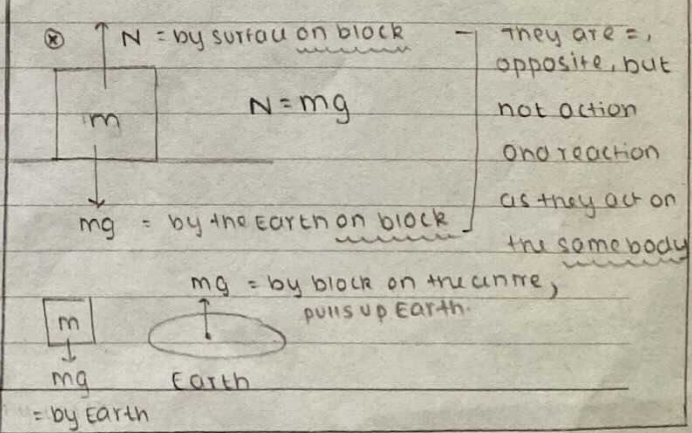 N = by surface on block
m
N = mg
mg = by the Earth on block
They are =,
opposite, but
not action
and reaction
as they act on
the same body
mg = by block on the centre,
pulls up Earth.
m
mg
Earth
= by Earth